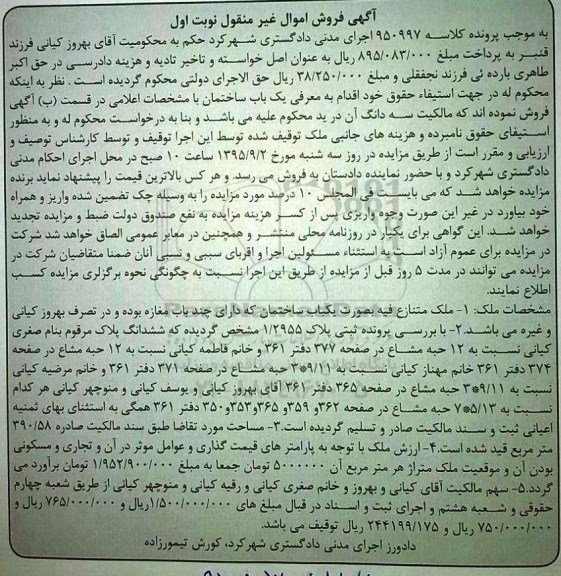 آگهی فروش اموال غیر منقول نوبت اول
به موجب پرونده کلاسه ۹۵۰۹۹۷ اجرای مدنی دادگستری شهرکرد حکم به محکومیت آقای بهروز کیانی فرزند
قنبر به پرداخت مبلغ ۸۹۵/۰۸۳/۰۰۰ ریال به عنوان اصل خواسته و تاخیر تادیه و هزینه دادرسی در حق اکبر
طاهری بارده ئی فرزند نجفقلی و مبلغ ۳۸/۲۵۰/۰۰۰ ریال حق الاجرای دولتی محکوم گردیده است . نظر به اینکه
محکوم له در جهت استیفاء حقوق خود اقدام به معرفی یک باب ساختمان با مشخصات اعلامی در قسمت (ب) آگهی
فروش نموده اند که مالکیت سه دانگ آن در ید محکوم علیه می باشد و بنا به درخواست محکوم له و به منظور
استیفای حقوق نامبرده و هزینه های جانبی ملک توقیف شده توسط این اجرا توقیف و توسط کارشناس توصیف و
ارزیابی و مقرر است از طریق مزایده در روز سه شنبه مورخ ۱۳۹۵/۹/۲ ساعت ۱۰ صبح در محل اجرای احکام مدنی
دادگستری شهرکرد و با حضور نماینده دادستان به فروش می رسد، و هر کس بالاترین قیمت را پیشنهاد نماید برنده
مزایده خواهد شد که می بایست فی المجلس ۱۰ درصد مورد مزایده را به وسیله چک تضمین شده واریز و همراه
خود بیاورد در غیر این صورت وجوه واریزی پس از کسر هزینه مزایده به نفع صندوق دولت ضبط و مزایده تجدید
خواهد شد. این گواهی برای یکبار در روزنامه محلی منتشر و همچنین در معابر عمومی الصاق خواهد شد شرکت
در مزایده برای عموم آزاد است به استثناء مسئولین اجرا و اقربای سببی و نسبی آنان ضمنا متقاضیان شرکت در
مزایده می توانند در مدت ۵ روز قبل از مزایده از طریق این اجرا نسبت به چگونگی نحوه برگزاری مزایده کسب
اطلاع نمایند.
مشخصات ملک: ۱- ملک متنازع فیه بصورت یکباب ساختمان که دارای چند باب مغازه بوده و در تصرف بهروز کیانی
و غیره می باشد.۲- با بررسی پرونده ثبتی پلاک ۱/۲۹۵۵ مشخص گردیده که ششدانگ پلاک مرقوم بنام صغری
کیانی نسبت به ۱۲ حبه مشاع در صفحه ۳۷۷ دفتر ۳۶۱ و خانم فاطمه کیانی نسبت به ۱۲ حبه مشاع در صفحه
۳۷۴ دفتر ۳۶۱ خانم مهناز کیانی نسبت به ۹/۱۱*۳ حبه مشاع در صفحه ۳۷۱ دفتر ۳۶۱ و خانم مرضیه کیانی
نسبت به ۹/۱۱*۳ حبه مشاع در صفحه ۳۶۵ دفتر ۳۶۱ آقای بهروز کیانی و یوسف کیانی و منوچهر کیانی هر کدام
نسبت به ۵/۱۳*۷ حبه مشاع در صفحه ۳۶۲و ۳۵۹و ۳۶۵و۳۵۳و۳۵۰ دفتر ۳۶۱ همگی به استثنای بهای ثمنیه
اعیانی ثبت و سند مالکیت صادر و تسلیم گردیده است.۳- مساحت مورد تقاضا طبق سند مالکیت صادره ۳۹۰/۵۸
متر مربع قید شده است.۴- ارزش ملک با توجه به پارامتر های قیمت گذاری و عوامل موثر در آن و تجاری و مسکونی
بودن آن و موقعیت ملک متراژ هر متر مربع آن ۵۰۰۰۰۰۰ تومان جمعا به مبلغ ۱/۹۵۲/۹۰۰/۰۰۰ تومان برآورد می
گردد.۵- سهم مالکیت آقای کیانی و بهروز و خانم صغری کیانی و رقیه کیانی و منوچهر کیانی از طریق شعبه چهارم
حقوقی و شعبه هشتم و اجرای ثبت و اسناد در قبال مبلغ های ۱/۵۰۰/۰۰۰/۰۰۰ریال و ۷۶۵/۰۰۰/۰۰۰ ریال و
۷۵۰/۰۰۰/۰۰۰ ریال و ۲۴۴۱۹۹/۱۷۵ ریال توقیف می باشد.
دادورز اجرای مدنی دادگستری شهرکرد، کورش تیمورزاده